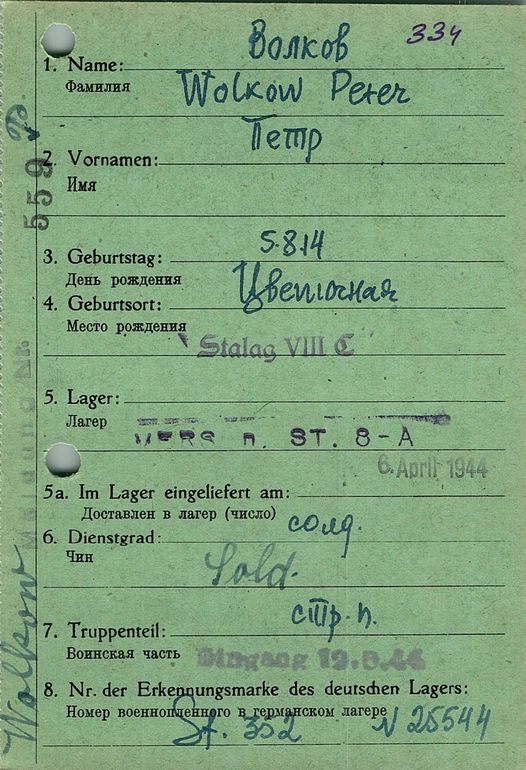 Волков 334
1. Name:
Фамилия
Wolkow Peter
Петр
2. Vornamen:
Имя
5.8.14
3. Geburtstag:
День рождения
Цветочная
4. Geburtsort:
Место рождения
Stalag VIII C
5. Lager:
Лагер
VERS n. ST. 8-A
6. April 1944
5a. Im Lager eingeliefert am:
Доставлен в лагер (число)
солд.
6. Dienstgrad:
Чин
Sold.
стр. п.
7. Truppenteil:
Воинская часть
Eingang
8. Nr. der Erkennungsmarke des deutschen Lagers:
Номер военнопленного в германском лагере
St. 352 N 25544
Wolkow
Meldung Nr.
559